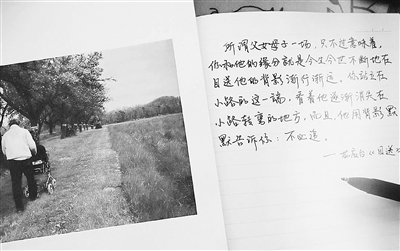 所谓父女母子一场，只不过意味着，
你和他的缘分就是今生今世不断地在
目送他的背影渐行渐远。你站立在
小路的这一端，看着他逐渐消失在
小路转弯的地方，而且，他用背影默
默告诉你：不必追。
——龙应台《目送》